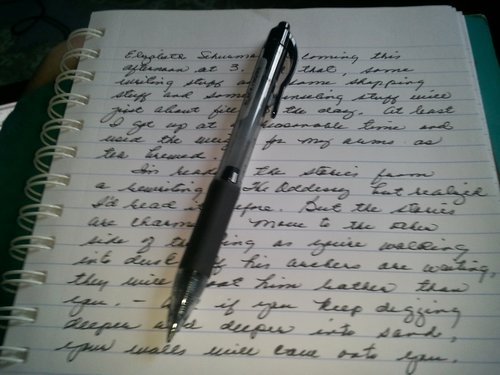 Elizabeth coming this
afternoon at 3. that, some
writing stuff some shopping
stuff and some stuff will
just about fill the day. At least
I got up at reasonable time and
used the for my arms as
tea brewed.
I'm the stories from
a rewriting The Odyssey but realized
I'd read before. But the stories
are charming Move to the other
side of the as you're walking
into dusk his archers are waiting,
they will him rather than
you. — if you keep digging
deeper and deeper into sand,
your walls will cave onto you.